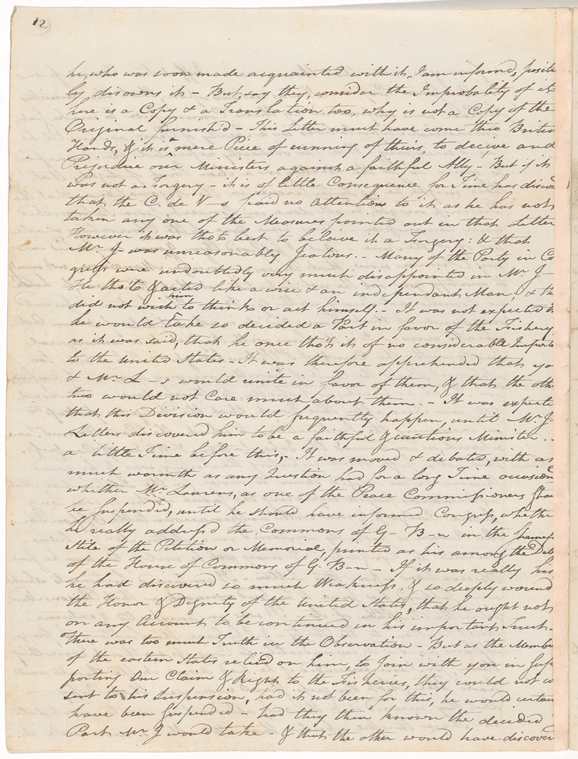 12
he, who was soon made acquainted with it, I am informed, positi
ly disowns it - But, say they, consider the Improbability of it
here is a Copy & a Translation too, why is not a Copy of the
Original furnished - This Letter must have come thro British
Hands, & it is a mere Piece of cunning of theirs, to deceive and
Prejudice our Ministers against a faithful Ally - But if it
was not a Forgery - it is of little Consequence for Time has discov
that the C. de V-s paid no Attention to it as he has not
taken any one of the Measures pointed out in that Letter
However it was tho't best to believe it a Forgery: & that
Mr. J. was unreasonably Jealous. - Many of the Party in Co
gress were undoubtedly very much disappointed in Mr J
He tho't & acted like a wise & an independant Man; & th
did not wish him to think or act himself. - It was not expected th
he would take so decided a Part in favor of the Fishery
as it was said, that he once tho't it of no considerable Import
to the United States - It was therefore apprehended that you
& Mr. L-s would unite in favor of them, & that the othe
two would not care much about them. - It was expecte
that this Division would frequently happen, until Mr. J's
Letters discovered him to be a faithful & cautious Minister. -
a little Time before this, - It was moved & debated, with as
much warmth as any Question had for a long Time occasion
whether Mr. Laurens, as one of the Peace Commissioners shou
be suspended, until he should have informed Congress, whethe
he really address'd the Commons of G- B-n in the
Stile of the Petition or Memorial, printed as his among the Deb
of the House of Commons of G. B-n - If it was really his
he had discovered so much Weakness, & so deeply wound
the Honor & Dignity of the United States, that he ought not
on any Account to be continued in his important Trust. -
There was too much Truth in the Observation - But as the Membe
of the eastern States relied on him, to Join with you in Sup
porting Our Claim & Right to the Fisheries, they could not co
sent to his Suspension, had it not been for this, he would certain
have been suspended - had they then known the decided
Part Mr. J would take - & that the other would have discover